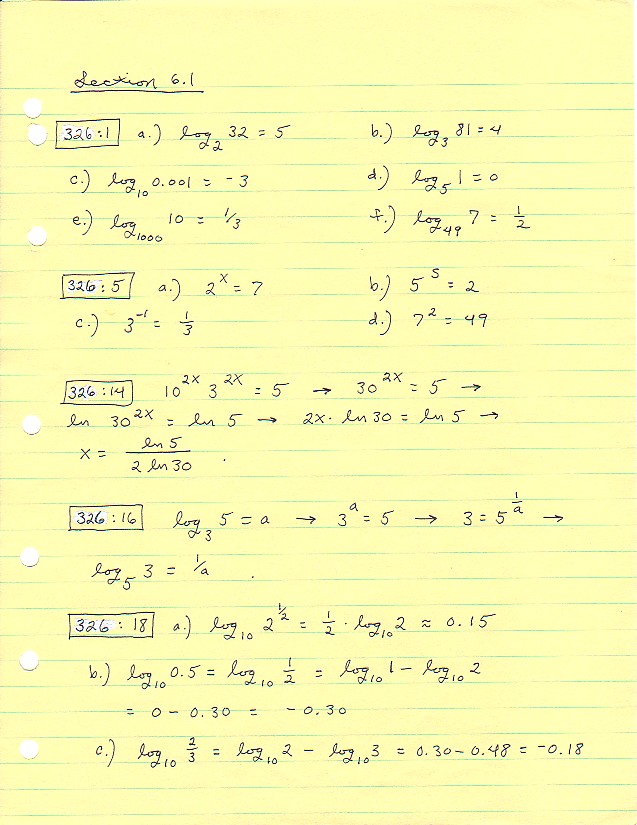 Section 6.1
326:1 a.) log₂ 32 = 5 b.) log₃ 81 = 4
c.) log₁₀ 0.001 = -3 d.) log₅ 1 = 0
e.) log₁₀₀₀ 10 = 1/3 f.) log₄₉ 7 = 1/2
326:5 a.) 2^x = 7 b.) 5^s = 2
c.) 3^-1 = 1/3 d.) 7^2 = 49
326:14 10^2x 3^2x = 5 → 30^2x = 5 →
ln 30^2x = ln 5 → 2x · ln 30 = ln 5 →
x = ln 5 / 2 ln 30 .
326:16 log₃ 5 = a → 3^a = 5 → 3 = 5^1/a →
log₅ 3 = 1/a .
326:18 a.) log₁₀ 2^1/2 = 1/2 · log₁₀ 2 ≈ 0.15
b.) log₁₀ 0.5 = log₁₀ 1/2 = log₁₀ 1 - log₁₀ 2
= 0 - 0.30 = -0.30
c.) log₁₀ 2/3 = log₁₀ 2 - log₁₀ 3 = 0.30 - 0.48 = -0.18